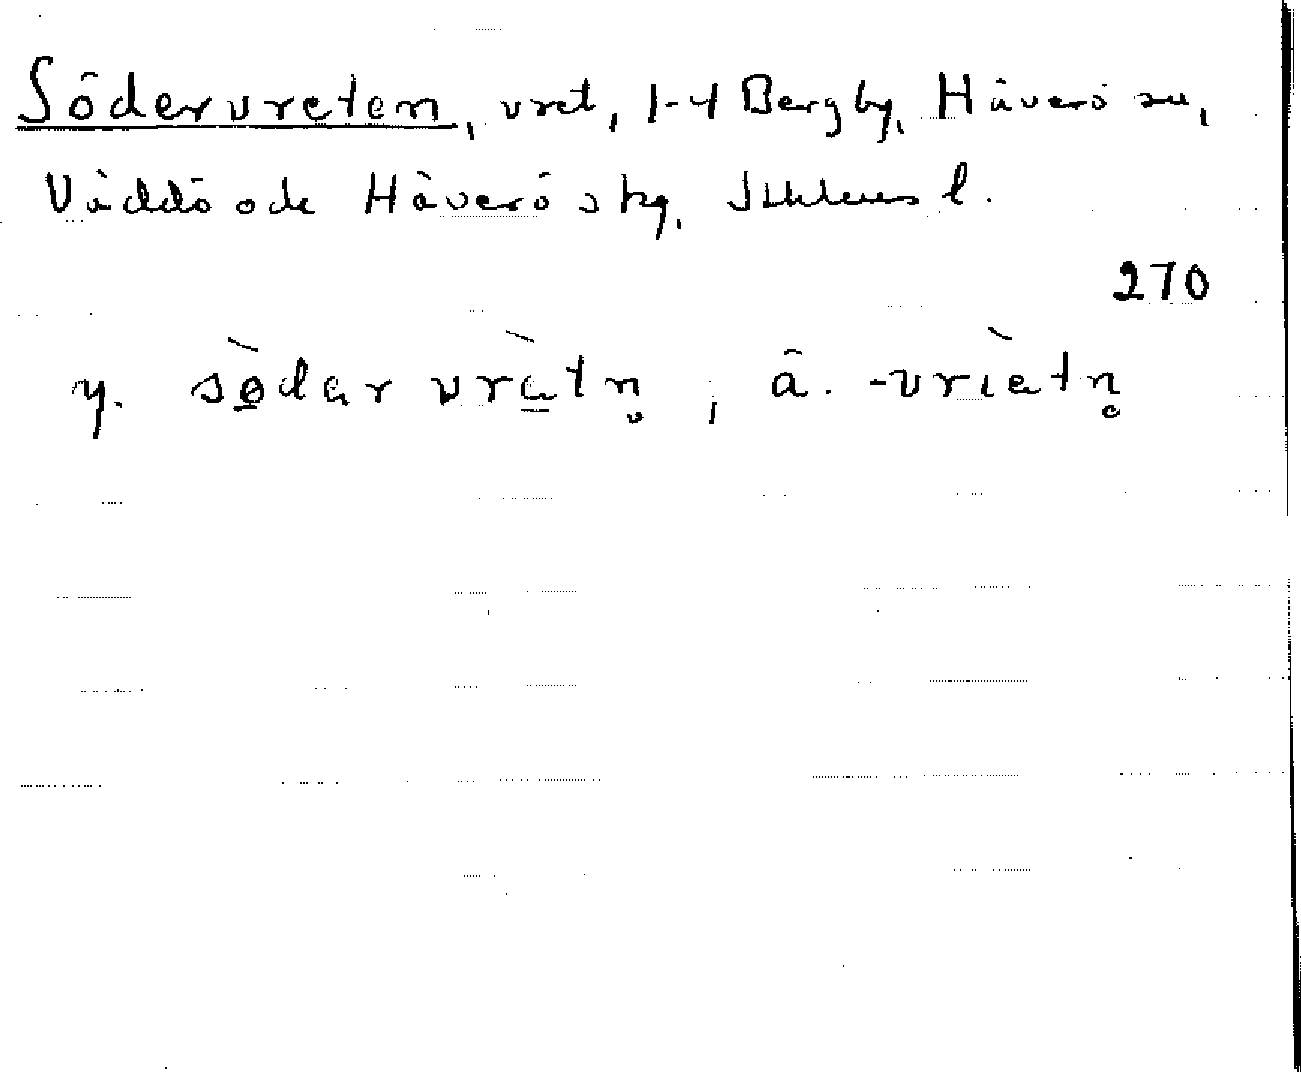 Södervreten, vret, 1-4 Bergby, Häverö sn,
Väddö och Häverö skg, Sthlms l.
270
y. sö̀dər vrètn̥ ; ä. -vrìetn̥